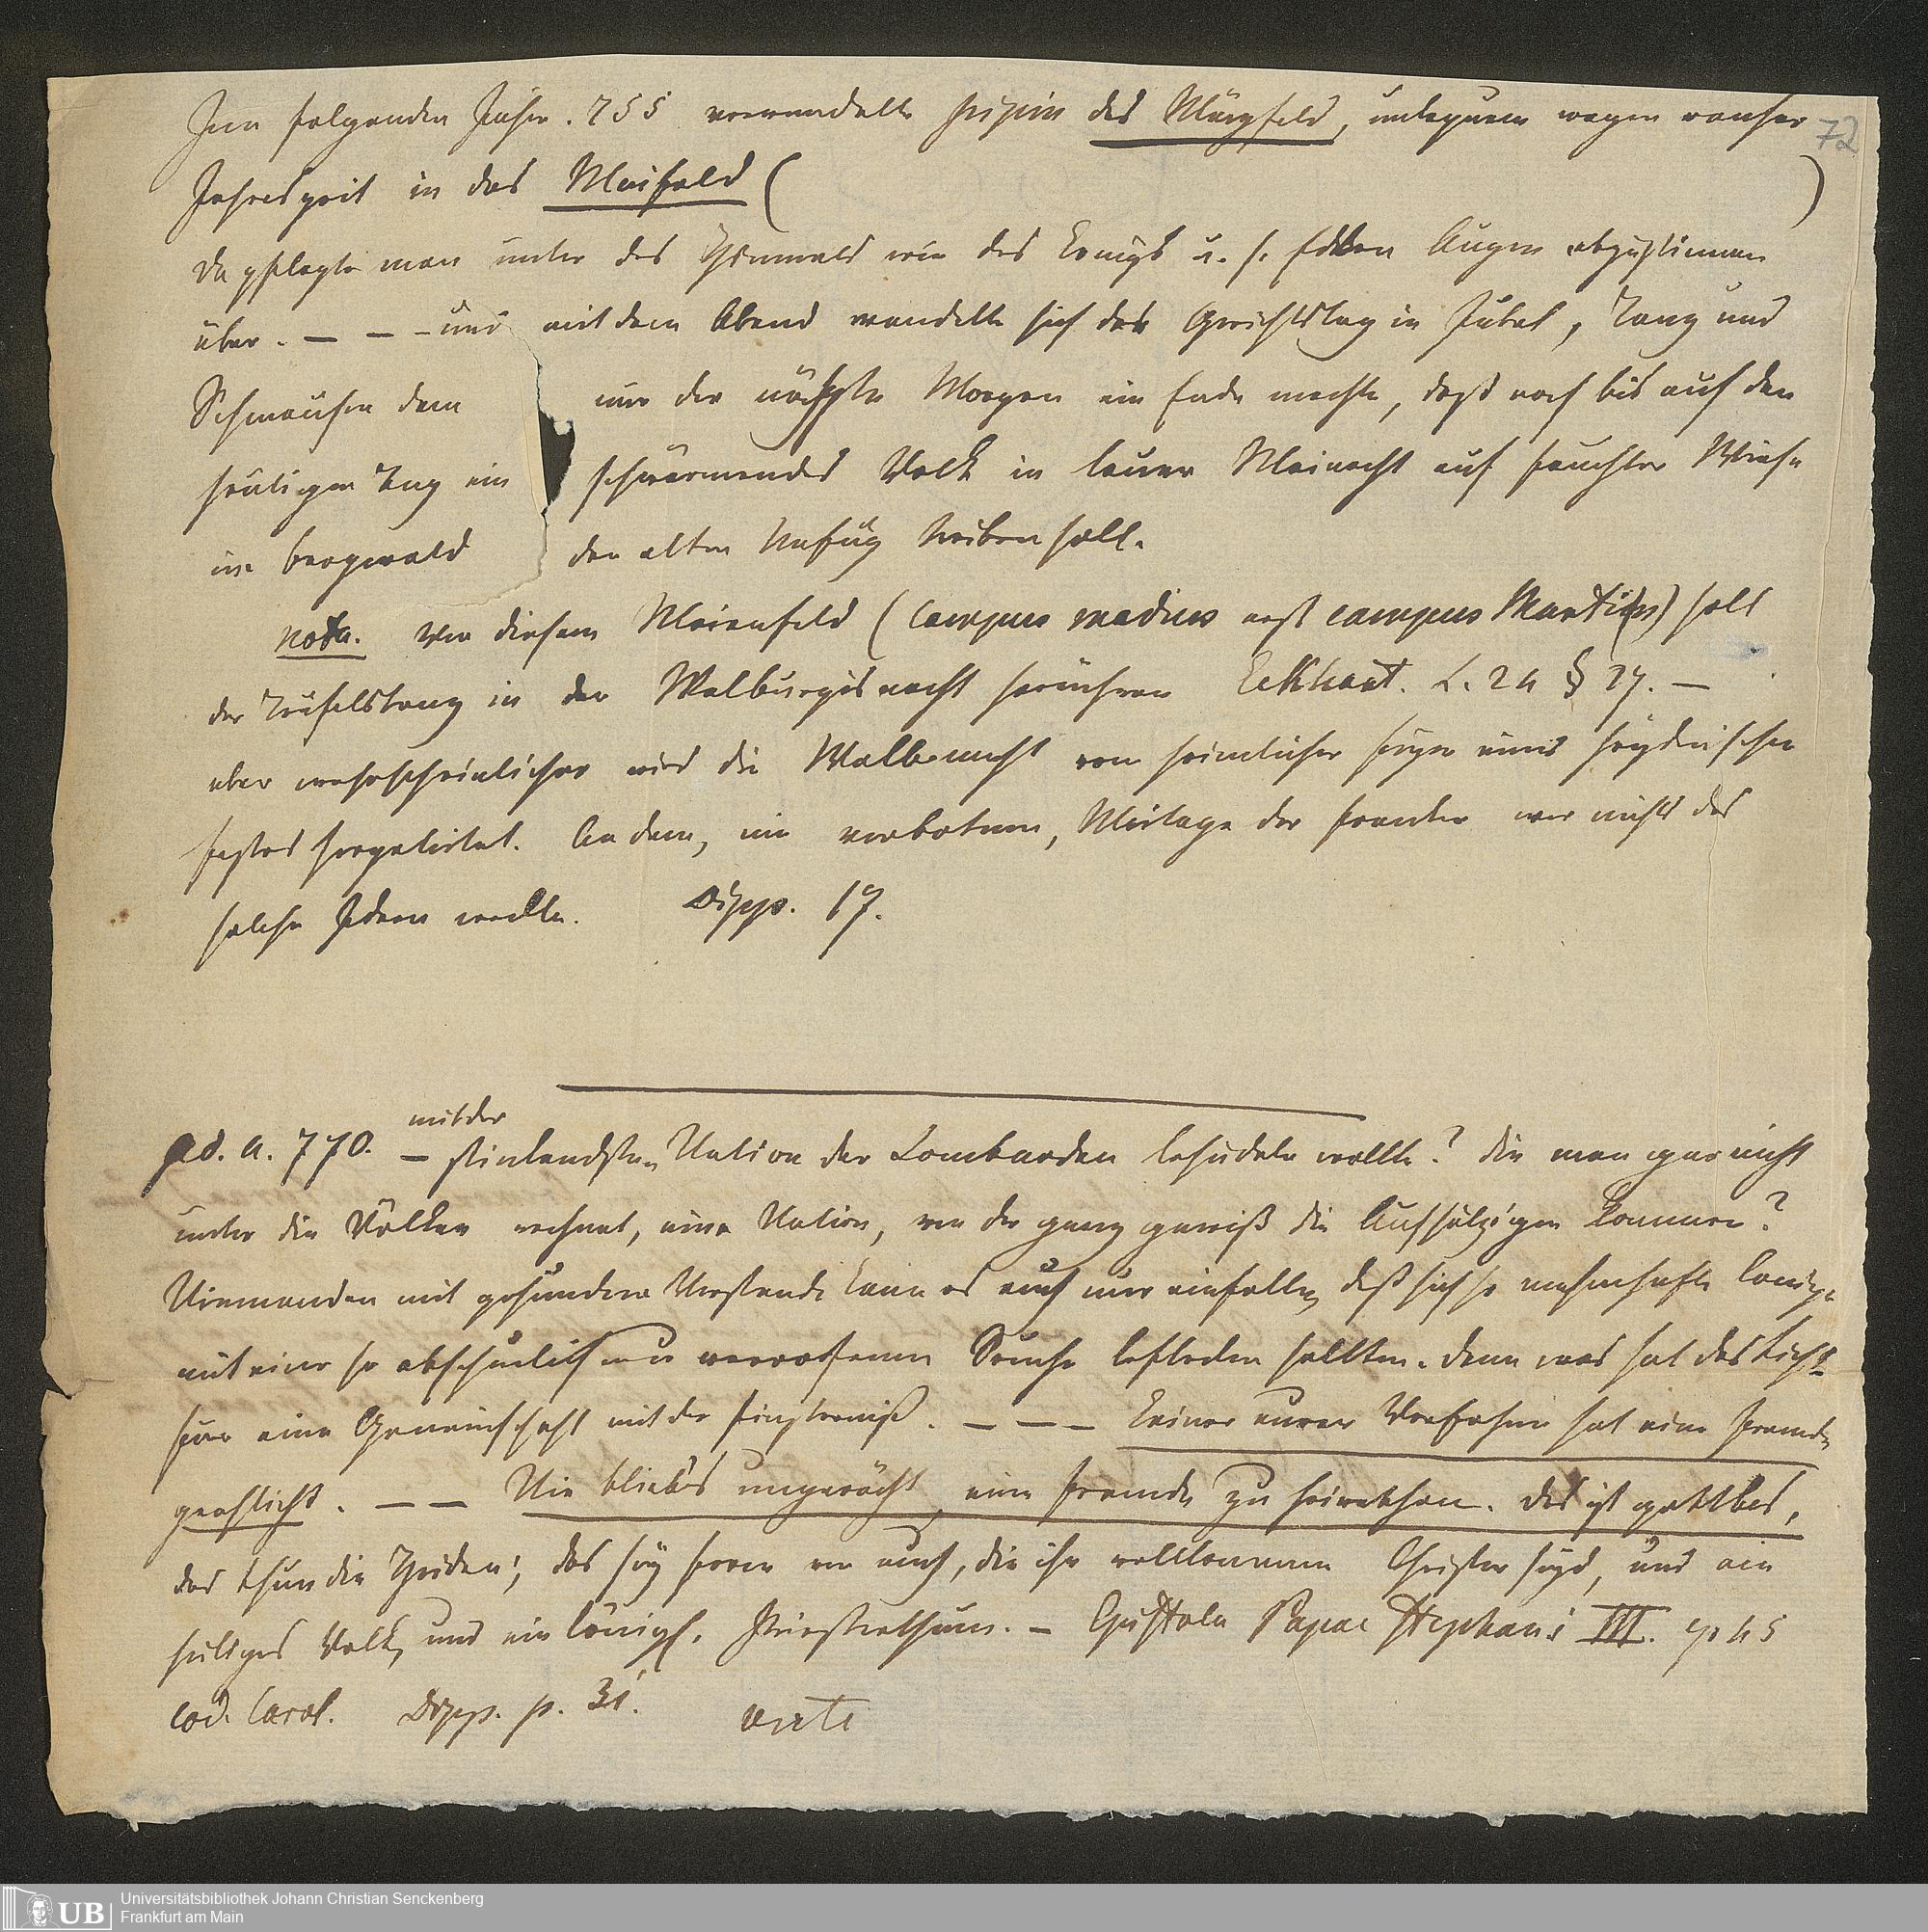 Im folgenden Jahre. 755 verwandelte Pipin das Märzfeld, unbequem wegen rauher
72
Jahreszeit in das Maifeld ( )
da pflegte man unter des Himmels wie des Königs u. s. Edlen Augen abzustimmen
über. — — — und mit dem Abend wandelte sich der Gerichtstag in Jubel, Tanz und
Schmausen dem nur der nächste Morgen ein Ende machte, daß noch bis auf den
heutigen Tag ein schwärmendes Volk in lauer Mainacht auf feuchter Wiese
im Bergwald den alten Unfug treiben soll.
nota. Von diesem Maienfeld (Campus madius erst campus Martius) soll
der Teufelstanz in der Walburgisnacht herrühren Eckhart. L. 24 § 27. —
aber wahrscheinlicher wird die Walbernacht von heimlicher Feyer eines heydnischen
Festes hergeleitet. An dem, im verbotenen, Maitage der Franken war nichts das
solche Ideen weckte. Dipp. 17.
ad. a. 770. — mit der stinkendsten Nation der Lombarden besudeln wollte? die man gar nicht
unter die Völker rechnet, eine Nation, von der ganz gewiß die Aussätzigen kommen?
Niemanden mit gesundem Verstande kann es auch nur einfallen, daß sich so nahmhafte Könige
mit einer so abscheulichen verworfenen Seuche beflecken sollten. Denn was hat das Licht
für eine Gemeinschaft mit der Finsterniß. — — — Keiner eurer Vorfahren hat eine Fremde
geehlicht. — — Nie bliebs ungerächt, eine Fremde zu heirathen. Das ist gottlos,
das thun die Heiden; das sey ferne von euch, die ihr vollkommene Christen seyd, und ein
heiliges Volk, und ein königl. Priesterthum. — Epistola Papae Stephani III. ep 45
Cod. Carol. Dipp. p. 31.
Universitätsbibliothek Johann Christian Senckenberg
Frankfurt am Main
UB